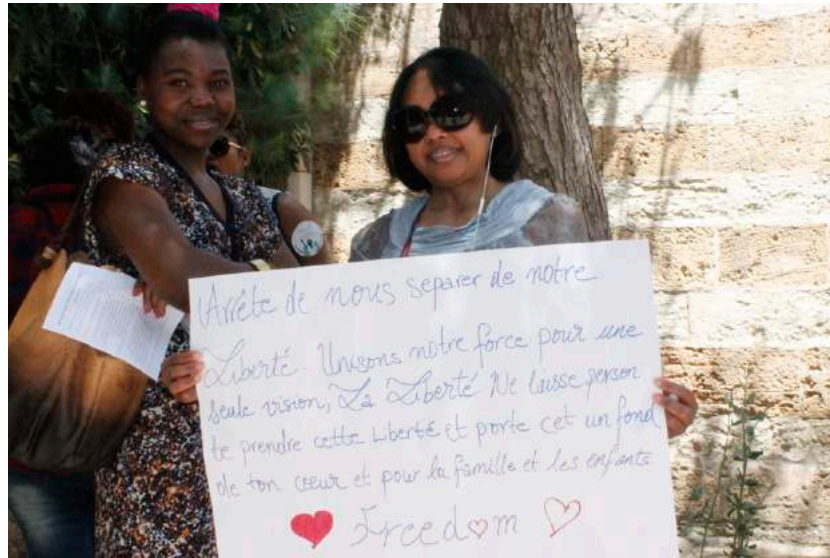 Arrête de nous separer de notre
Liberté. Unisons nôtre force pour une
seule vision, La Liberté Ne laisse person
te prendre cette Liberté et porte cet un fond
de ton cœur et pour la famille et les enfants
Freedom